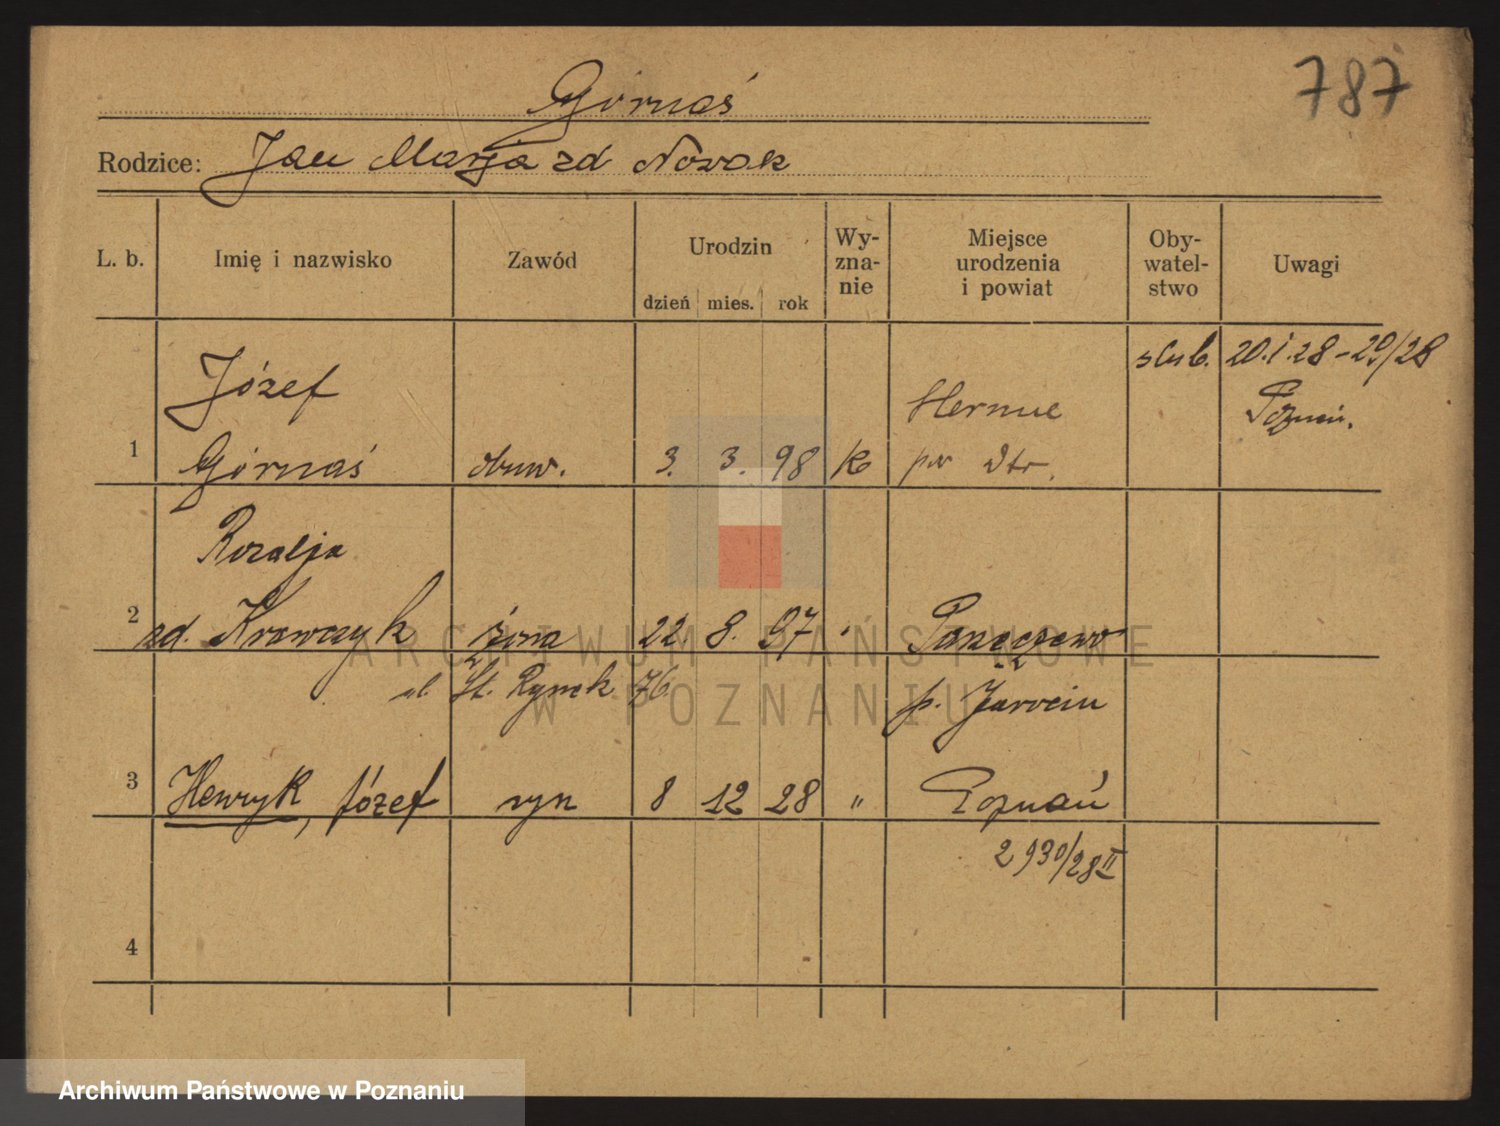 787
Górnaś
Rodzice: Jan Marja zd Nowak
L. b. Imię i nazwisko Zawód Urodzin dzień mies. rok Wy-zna-nie Miejsce urodzenia i powiat Oby-watel-stwo Uwagi
ślub. 20.1.28 - 29/28
Józef Poznań.
1 Górnaś obuw. 3. 3. 98 K pow Ostr.
Rozalja
2 zd. Krawczyk żona 22 8. 97 " Panęczewo
ul St. Rynek 76 p. Jarocin
3 Henryk, Józef syn 8 12 28 " Poznań
2930/28 II
4
ARCHIWUM PAŃSTWOWE
W POZNANIU
Archiwum Państwowe w Poznaniu